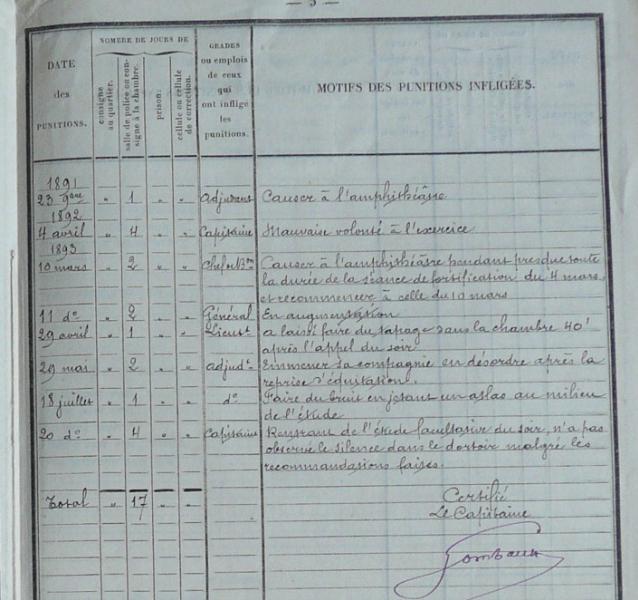 — 3 —
DATE des PUNITIONS.
NOMBRE DE JOURS DE
consigne au quartier.
salle de police ou consigne à la chambre.
prison.
cellule ou cellule de correction.
GRADES ou emplois de ceux qui ont infligé les punitions.
MOTIFS DES PUNITIONS INFLIGÉES.
1891
23 9bre " 1 " " Adjudant Causer à l'amphithéâtre
1892
4 avril " 4 " " Capitaine Mauvaise volonté à l'exercice
1893
10 mars " 2 " " Chef de Bon Causer à l'amphithéâtre pendant presque toute
la durée de la séance de fortification du 4 mars
et recommencer à celle du 10 mars
11 do " 2 " " Général En augmentation
29 avril " 1 " " Lieut. a laissé faire du tapage dans la chambre 40
après l'appel du soir
29 mai " 2 " " adjudt. Emmener sa compagnie en désordre après la
reprise d'équitation.
18 juillet " 1 " " do Faire du bruit en jetant un atlas au milieu
de l'étude
20 do " 4 " " Capitaine Rentrant de l'étude facultative du soir, n'a pas
observé le silence dans le dortoir malgré les
recommandations faites.
Total " 17 " " Certifié
Le Capitaine